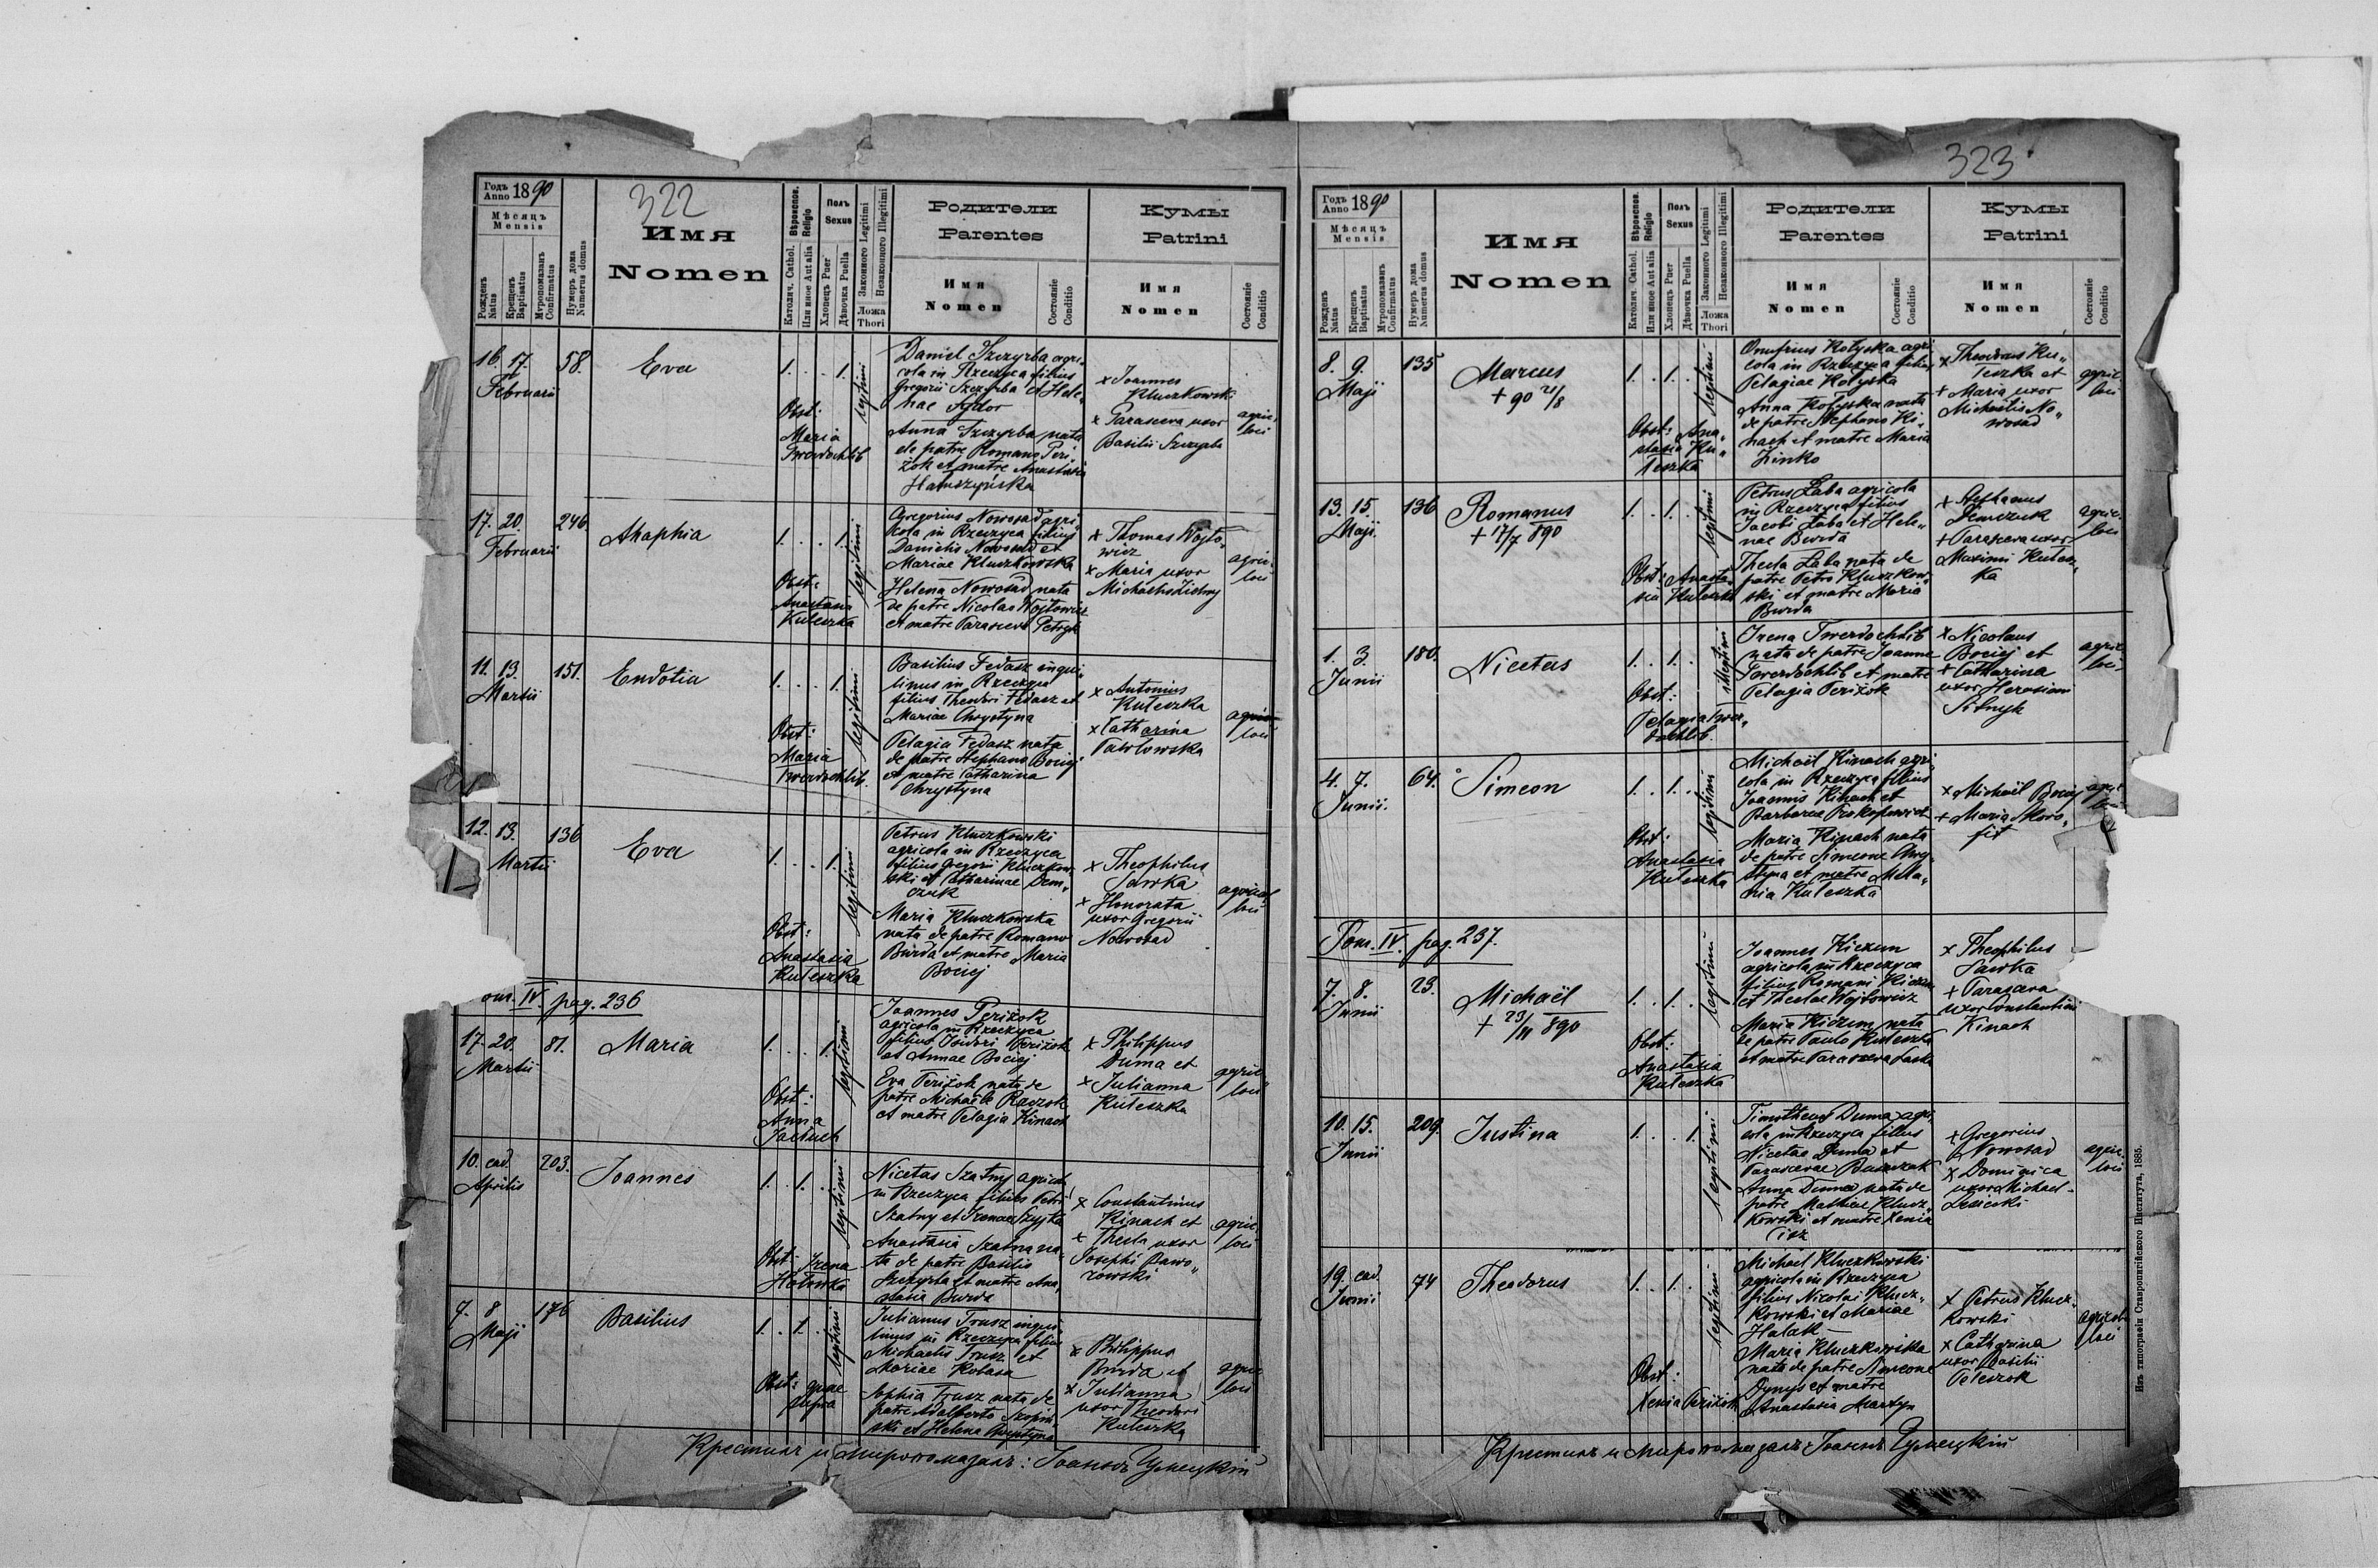 322
Годъ Anno 1890
Мѣсяцъ Mensis
Рожденъ Natus
Крещенъ Baptisatus
Муропомазанъ Confirmatus
Нумеръ дома Numerus domus
Имя Nomen
Вѣроиспов. Religio
Католич. Cathol.
Или иное Aut alia
Полъ Sexus
Хлопецъ Puer
Дѣвочка Puella
Законного Legitimi
Незаконного Illegitimi
Ложа Thori
Родители Parentes
Имя Nomen
Состояніе Conditio
Кумы Patrini
Имя Nomen
Состояніе Conditio
16. 17. Februarii
58.
Eva
1. . . 1.
legitimi
Obst:
Maria
Twerdochlib
Daniel Szczyrba agri-
cola in Rzeczyca filius
Gregorii Szczyrba et Hele-
nae Fedor
Anna Szczyrba nata
de patre Romano Teri-
żok et matre Anastasia
x Joannes
Kluczkowski
x Parasceva uxor
Basilii Szczyrba
agric.
loci
17. 20. Februarii
246
Ahaphia
1. . . 1.
legitimi
Obst:
Anastasia
Kuleszka
Gregorius Nowosad agri-
cola in Rzeczyca filius
Danielis Nowosad et
Mariae Kluczkowska
Helena Nowosad nata
de patre Nicolao Wojtowicz
et matre Parasceva Petryk
x Thomas Wojto-
wicz
x Maria uxor
Michaelis
agric.
loci
11. 13. Martii
151.
Eudotia
1. . . 1.
legitimi
Obst:
Maria
Twerdochlib.
Basilius Fedasz inqui-
linus in Rzeczyca
filius Theodori Fedasz et
Mariae Chrystyna
Pelagia Fedasz nata
de patre Stephano Bociej
et matre Catharina
Chrystyna
x Antonius
Kuleszka
x Catharina
Pawlowska
agric.
loci
12. 13. Martii
136
Eva
1. . . 1.
legitimi
Obst:
Anastasia
Kuleszka
Petrus Kluczkowski
agricola in Rzeczyca
filius Gregorii Kluczkow-
ski et Catharinae Dem-
czuk
Maria Kluczkowska
nata de patre Romano
Burda et matre Maria
Bociej
x Theophilus
Sawka
x Honorata
uxor Gregorii
Nowosad
agricol
loci
om. IV. pag. 236
17. 20. Martii
81.
Maria
1. . . 1.
legitimi
Obst:
Anna
Joannes Teriżok
agricola in Rzeczyca
filius Isidori Teriżok
et Annae Bociej
Eva Teriżok nata de
patre Michaele Raczok
et matre Pelagia Kinach
x Philippus
Duma et
x Julianna
Kuleszka
agric.
loci
10. ead. Aprilis
203.
Joannes
1. . 1. .
legitimi
Obst: Irena
Nicetas Szatny agricola
in Rzeczyca filius Petri
Szatny et Irenae
Anastasia Szatna na-
ta de patre Basilio
Szczyrba et matre Ana-
stasia Burda
x Constantinus
Kinach et
x Thecla uxor
Josephi Dawo-
rowski
agric.
loci
7. 8 Maji
176
Basilius
1. . 1. .
legitimi
Obst: quae
supra
Julianus Trusz inqui-
linus in Rzeczyca filius
Michaelis Trusz et
Mariae Kobasa
Sophia Trusz nata de
patre Adalberto
ski et Helena Chrystyna
x Philippus
Burda et
x Julianna
uxor Theodori
Kuleszka
agric.
loci
Крестилъ и миропомазалъ: Іоаннъ
323
Годъ Anno 1890
Мѣсяцъ Mensis
Рожденъ Natus
Крещенъ Baptisatus
Муропомазанъ Confirmatus
Нумеръ дома Numerus domus
Имя Nomen
Вѣроиспов. Religio
Католич. Cathol.
Или иное Aut alia
Полъ Sexus
Хлопецъ Puer
Дѣвочка Puella
Законного Legitimi
Незаконного Illegitimi
Ложа Thori
Родители Parentes
Имя Nomen
Состояніе Conditio
Кумы Patrini
Имя Nomen
Состояніе Conditio
8. 9. Maji
135
Marcus
+ 90 21/8
1. . 1. .
legitimi
Obst: Ana-
stasia Ku-
leszka
Onufrius Kołyska agri
cola in Rzeczyca filius
Pelagiae Kołyska
Anna Kołyska nata
de patre Stephano Ki-
nach et matre Maria
Zinko
x Theodorus Ku-
leszka et
+ Maria uxor
Michaelis No-
wosad
agric.
loci
13. 15. Maji
136
Romanus
+ 17/7 890
1. . 1. .
legitimi
Obst: Anasta-
sia Kuleszka
Petrus Łaba agricola
in Rzeczyca filius
Jacobi Łaba et Hele-
nae Burda
Thecla Łaba nata de
patre Petro Kluczkow-
ski et matre Maria
Burda
+ Stephanus
Demczuk
+ Parasceva uxor
Maximi Kulesz-
ka
agric.
loci
1. 3. Junii
180.
Nicetas
1. . 1. .
illegitimi
Obst:
Pelagia Twer-
dochlib.
Irena Twerdochlib
nata de patre Joanne
Twerdochlib et matre
Pelagia Teriżok
x Nicolaus
Bociej et
+ Catharina
uxor Herasimi
Sitnyk
agric.
loci.
4. 7. Junii.
64.
Simeon
1. . 1. .
legitimi
Obst:
Anastasia
Kuleszka
Michaël Kinach agri-
cola in Rzeczyca filius
Joannis Kinach et
Barbarae Prokopowicz
Maria Kinach nata
de patre Simeone Chry-
styna et matre Mela-
nia Kuleszka
x Michaël Bociej
+ Maria Skoro-
fit
Tom. IV. pag. 237.
7. 8. Junii
23.
Michaël
+ 23/11 890
1. . 1. .
legitimi
Obst:
Anastasia
Kuleszka
Joannes Kiczun
agricola in Rzeczyca
filius Romani Kiczun
et Theclae Wojtowicz
Maria Kiczun nata
de patre Paulo Kuleszka
et matre Parasceva
x Theophilus
Sawka
+ Parasceva
uxor Constantini
Kinach
10. 15. Junii
209.
Justina
1. . . 1.
legitimi
Timotheus Duma agri-
cola in Rzeczyca filius
Nicetae Duma et
Parascevae
Anna Duma nata de
patre Mathia Klucz-
kowski et matre Xenia
Cisz
x Gregorius
Nowosad
x Dominica
uxor Michael.
agric.
loci
19. ead. Junii
74
Theodorus
1. . 1. .
legitimi
Obst:
Xenia Teriżok
Michaël Kluczkowski
agricola in Rzeczyca
filius Nicolai Klucz-
kowski et Mariae
Halak
Maria Kluczkowska
nata de patre Simeone
Dynys et matre
Anastasia Martyn
x Petrus Klucz-
kowski
x Catharina
uxor Basilii
Peleszok
agricol
loci
Крестилъ и миропомазалъ: Іоаннъ
Изъ типографіи Ставропигійского Института, 1885.